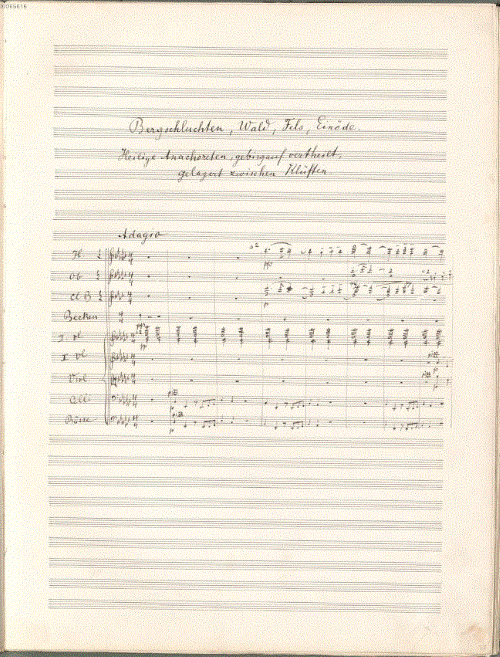 Bergschluchten, Wald, Fels, Einöde.
Heilige Anachoreten gebirgauf vertheilt,
gelagert zwischen Klüften
Adagio
Fl.
Ob
Cl B
Becken
I. Vl
II Vl
Viol
Cll
Bässe